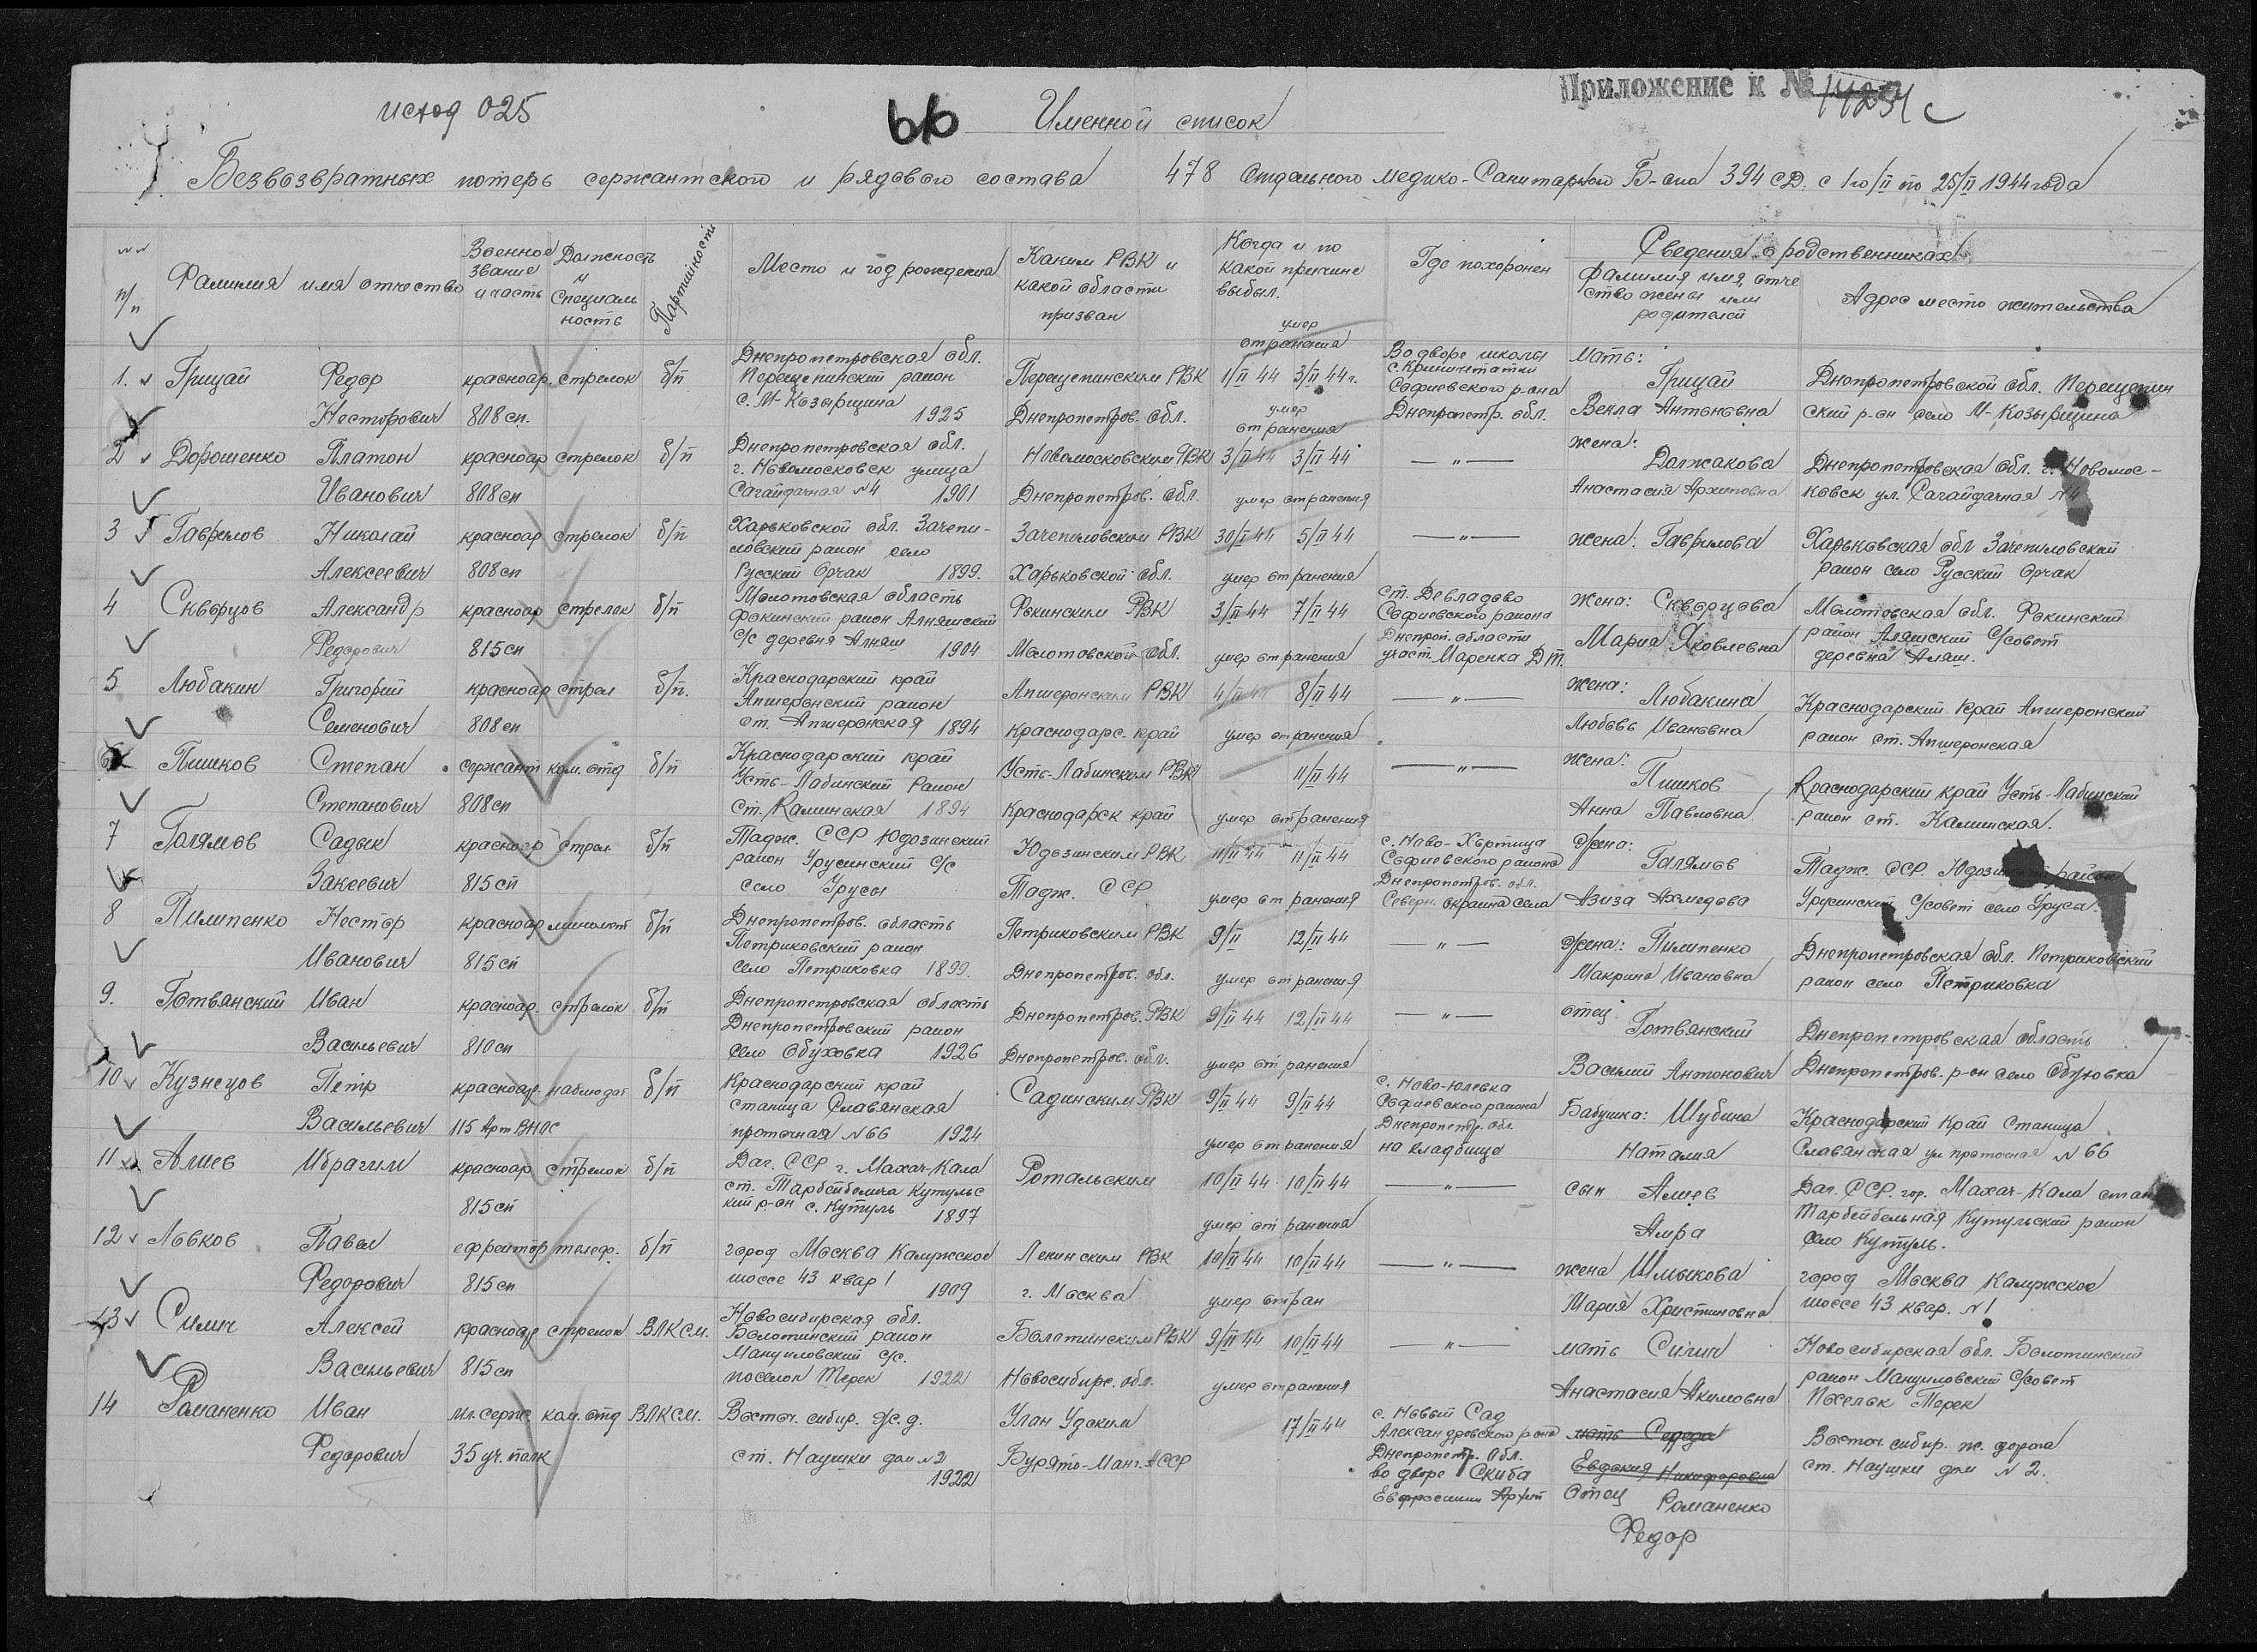 исход 025
66 Именной список
Приложение к № 1425 с
Безвозвратных потерь сержантского и рядового состава 478 Отдельного медико-Санитарного Б-она 394 СД. с 1го/II по 25/II 1944 года
№№ п/п
Фамилия имя отчество
Военное звание и часть
Должность и специальность
Партийность
Место и год рождения
Каким РВК и какой области призван
Когда и по какой причине выбыл.
Где похоронен
Сведения о родственниках
Фамилия имя, отчество жены или родителей
Адрес место жительства
умер от ранения
1. Грицай Федор красноар. стрелок б/п Днепропетровская обл. Перещепинский район с. М-Козырщина 1925 Перещепинским РВК Днепропетров. обл. 1/II 44 3/II 44 г. Во дворе школы с. Криничеватки Софиевского р-она Днепропетр. обл. Мать: Грицай Векла Антоновна Днепропетровской обл. Перещепинский р-он село М-Козырщина
Несторович 808 сп.
умер от ранения
2 Дорошенко Платон красноар стрелок б/п Днепропетровская обл. г. Новомосковск улица Сагайдачная №4 1901 Новомосковским РВК Днепропетров. обл. 3/II 44 3/II 44 —"— жена: Должакова Анастасия Архиповна Днепропетровская обл. г. Новомосковск ул. Сагайдачная №4
Иванович 808 сп
умер от ранения
3 Гаврилов Николай красноар стрелок б/п Харьковской обл. Зачепиловский район село Русский Орчак 1899. Зачепиловским РВК Харьковской обл. 30/I 44 5/II 44 —"— жена: Гаврилова Харьковская обл Зачепиловский район село Русский Орчак
Алексеевич 808 сп
умер от ранения
4 Скворцов Александр красноар стрелок б/п Молотовская область Фокинский район Алняшский с/с деревня Алняш 1904 Фокинским РВК Молотовской обл. 3/II 44 7/II 44 ст. Девладово Софиевского района Днепроп. области участ. Маренка Д.Т. Жена: Скворцова Мария Яковлевна Молотовская обл. Фокинский район Аляшский С/совет деревня Аляш.
Федорович 815 сп
умер от ранения
5 Любакин Григорий красноар стрел б/п. Краснодарский край Апшеронский район ст. Апшеронская 1894 Апшеронским РВК Краснодарс. край 4/II 44 8/II 44 —"— жена: Любакина Любовь Ивановна Краснодарский край Апшеронский район ст. Апшеронская
Семенович 808 сп
умер от ранения
6 Пшиков Степан сержант ком. отд б/п Краснодарский край Усть-Лабинский Район ст. Каминская 1894 Усть-Лабинским РВК Краснодарск край 11/II 44 —"— жена: Пшиков Анна Павловна Краснодарский край Усть-Лабинский район ст. Каминская.
Степанович 808 сп
умер от ранения
7 Голямов Садык красноар стрел б/п Тадж. ССР Юдозинский район Урусинский с/с село Урусы Юдозинским РВК Тадж. ССР 11/II 44 11/II 44 с. Ново-Хортица Софиевского района Днепропетров. обл. Северн. окраина села Жена: Галямов Азиза Ахмедова Тадж. ССР. Юдозинский район Урусинский С/совет село Урусы.
Закеевич 815 сп
умер от ранения
8 Пилипенко Нестор красноар миномет б/п Днепропетров. область Петриковский район село Петриковка 1899. Петриковским РВК Днепропетров. обл. 9/II 12/II 44 —"— Жена: Пилипенко Макрина Ивановна Днепропетровская обл. Петриковский район село Петриковка
Иванович 815 сп
умер от ранения
9. Готвянский Иван красноар. стрелок б/п Днепропетровская область Днепропетровский район село Обуховка 1926 Днепропетров. РВК Днепропетров. обл. 9/II 44 12/II 44 —"— отец: Готвянский Василий Антонович Днепропетровская область Днепропетров. р-он село Обуховка
Васильевич 810 сп
умер от ранения
10 Кузнецов Петр красноар. наблюдат б/п Краснодарский край станица Славянская проточная №66 1924 Садинским РВК 9/II 44 9/II 44 с. Ново-Юлевка Софиевского района Днепропетр. обл на кладбище Бабушка: Шубина Наталия Краснодарский Край Станица Славянская ул проточная №66
Васильевич 115 Арт ВНОС
умер от ранения
11 Алиев Ибрагим красноар стрелок б/п Даг. ССР г. Махач-Кала Кутульский р-он с. Кутуль 1897 Ротальским 10/II 44 10/II 44 —"— сын Алиев Амра Даг. ССР. гор. Махач-Кала Кутульский район село Кутуль.
815 сп
умер от ранения
12 Ловков Павел ефрейтор телеф. б/п город Москва Калужское шоссе 43 квар 1 1909 Ленинским РВК г. Москва 10/II 44 10/II 44 —"— жена Шлыкова Мария Христиновна город Москва Калужское шоссе 43 квар. №1
Федорович 815 сп
умер от ран
13 Силич Алексей красноар стрелок ВЛКСМ. Новосибирская обл. Болотинский район Мануиловский с/с. поселок Терек 1922 Болотинским РВК Новосибирс. обл. 9/II 44 10/II 44 —"— мать Силич Анастасия Акимовна Новосибирская обл. Болотинский район Мануиловский С/совет Поселок Терек
Васильевич 815 сп
умер от ранения
14 Романенко Иван мл. серж. ком. отд ВЛКСМ. Восточ. сибир. ж.д. ст. Наушки дом №2 1922 Улан Удским Бурято-Монг. АССР 17/II 44 с. Новый Сад Александровского р-она Днепропетр. обл. во дворе Скиба Евфросинии Архип мать Середа Евдокия Никифоровна Отец Романенко Федор Восточ. сибир. ж. дорога ст. Наушки дом №2.
Федорович 35 уч. полк